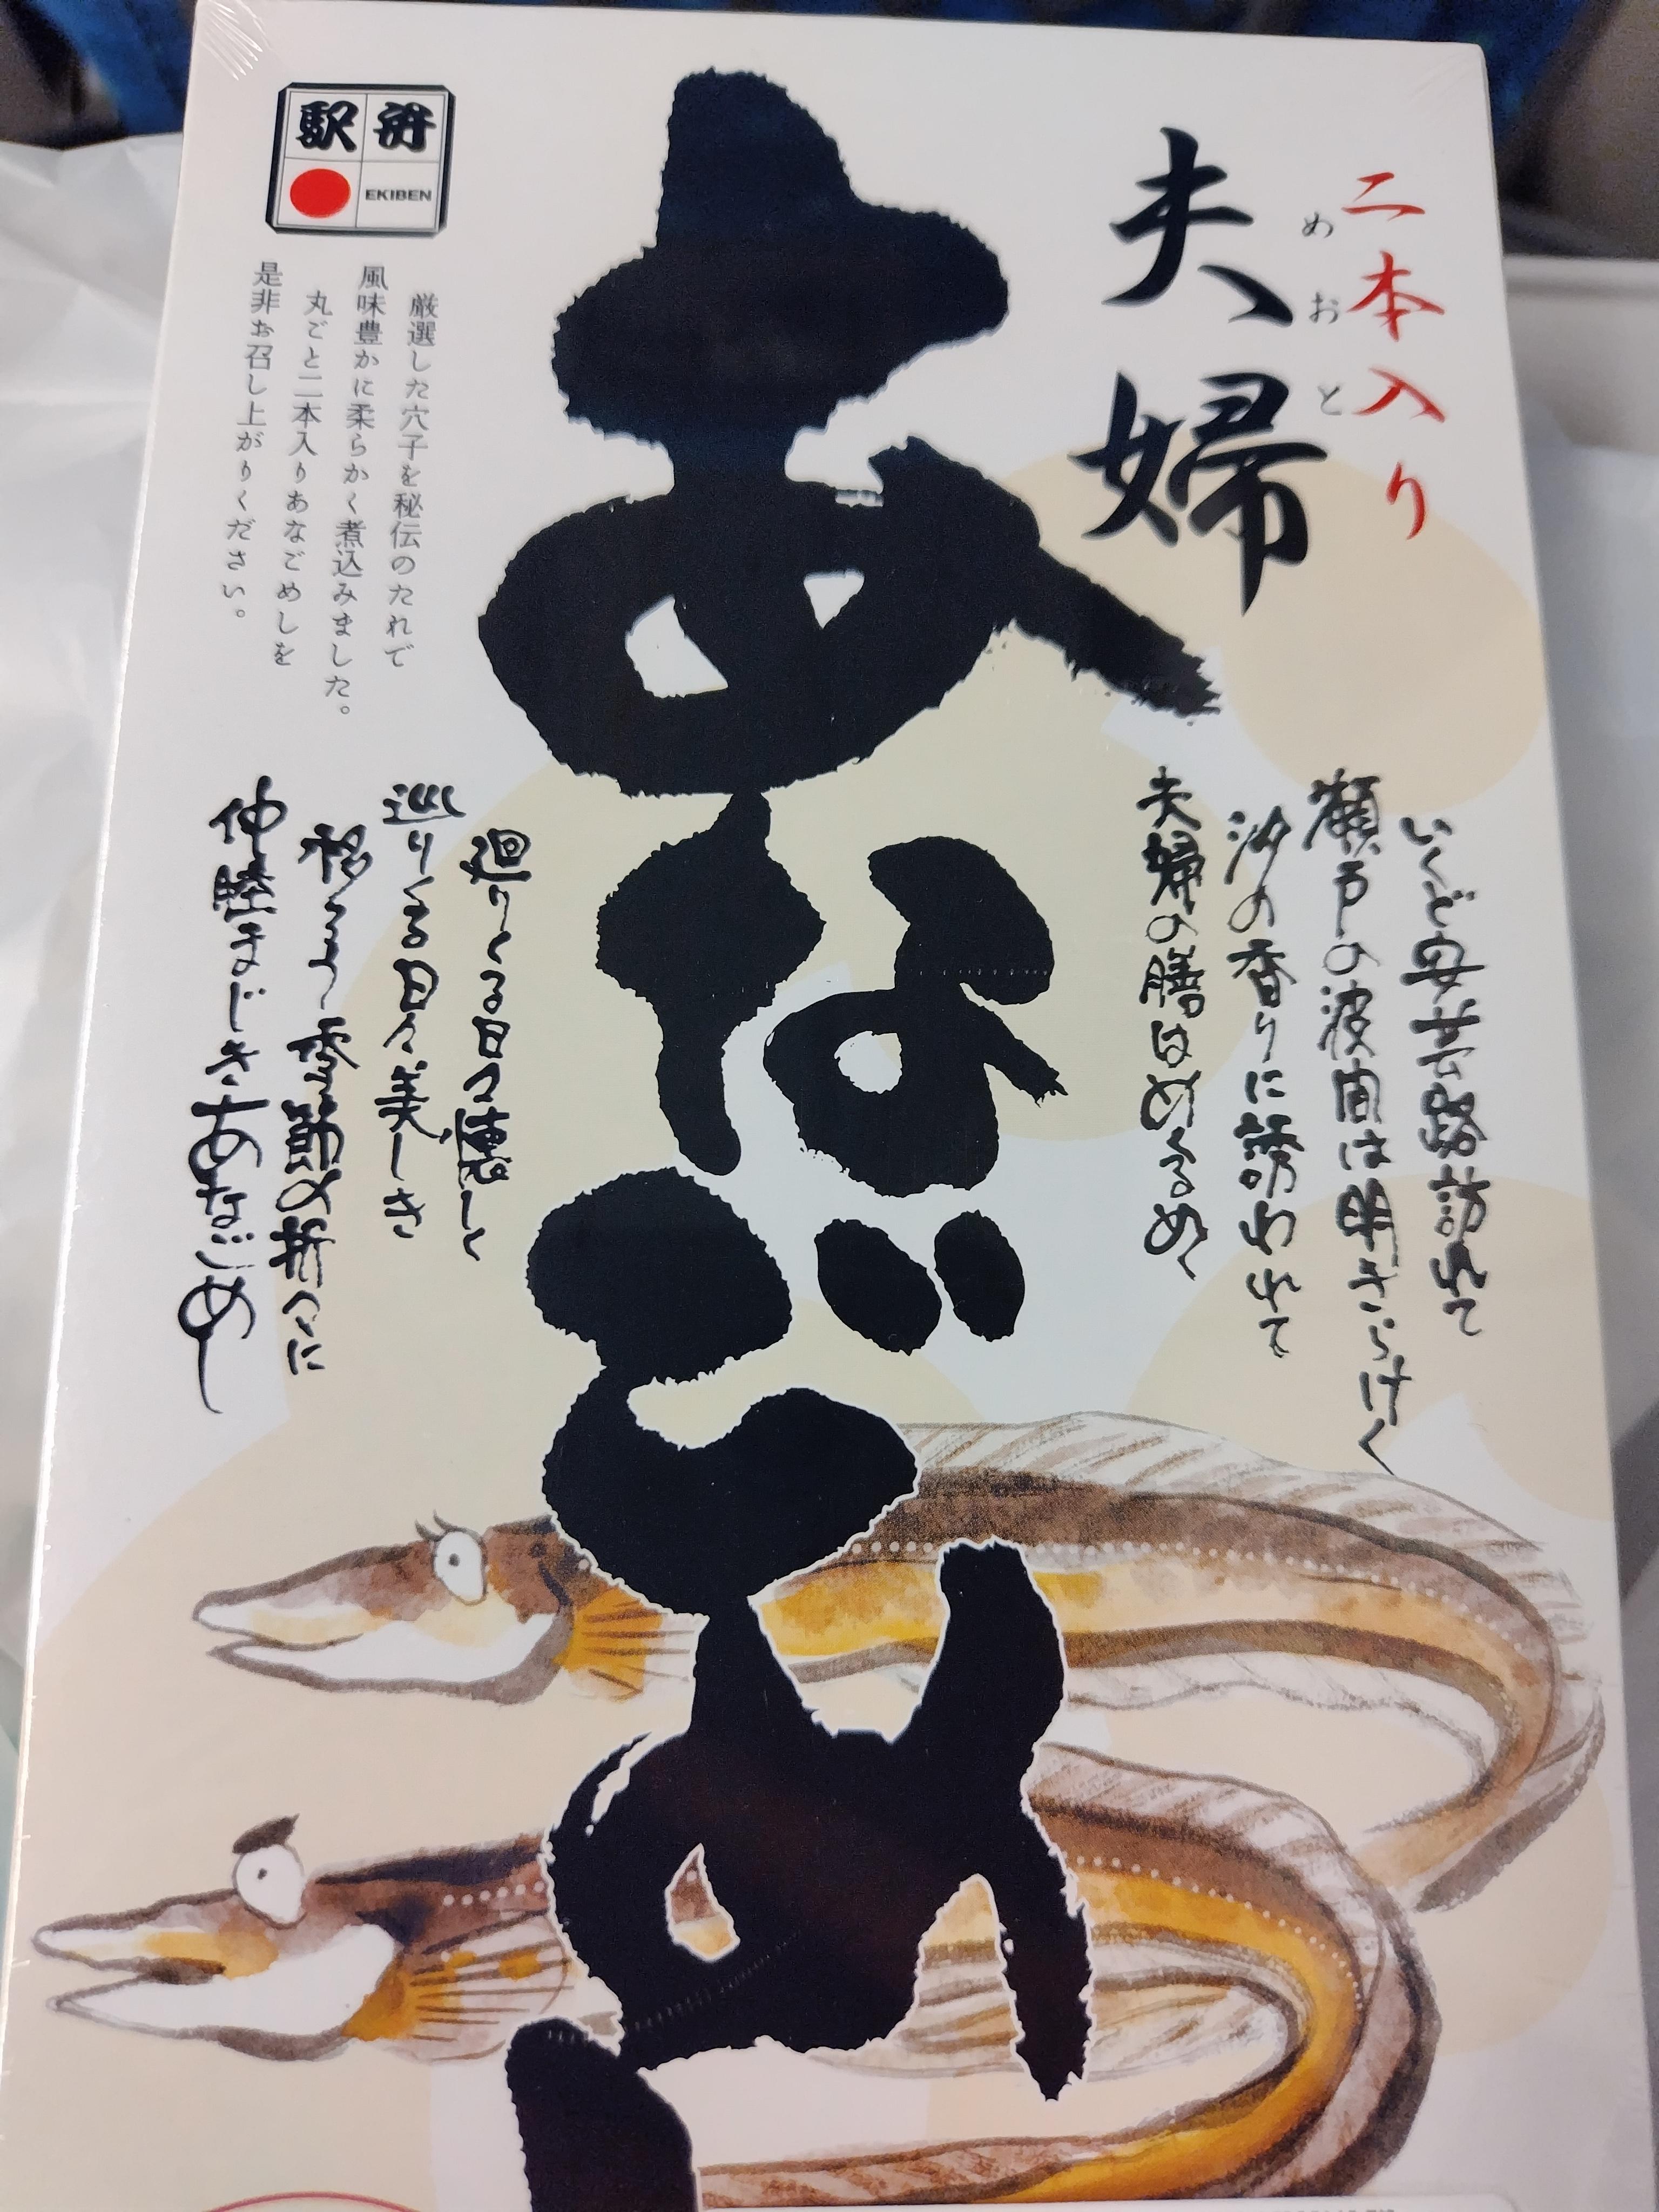 二本入り
めおと
夫婦
あなごめし
駅弁
EKIBEN
厳選した穴子を秘伝のたれで
風味豊かに柔らかく煮込みました。
丸ごと二本入りあなごめしを
是非お召し上がりください。
いくど安芸路訪れて
瀬戸の波間は明きらけく
汐の香りに誘われて
夫婦の膳はめくるめく
廻りくる日々懐しく
巡りくる日々美しき
移ろう季節の折々に
仲睦まじきあなごめし